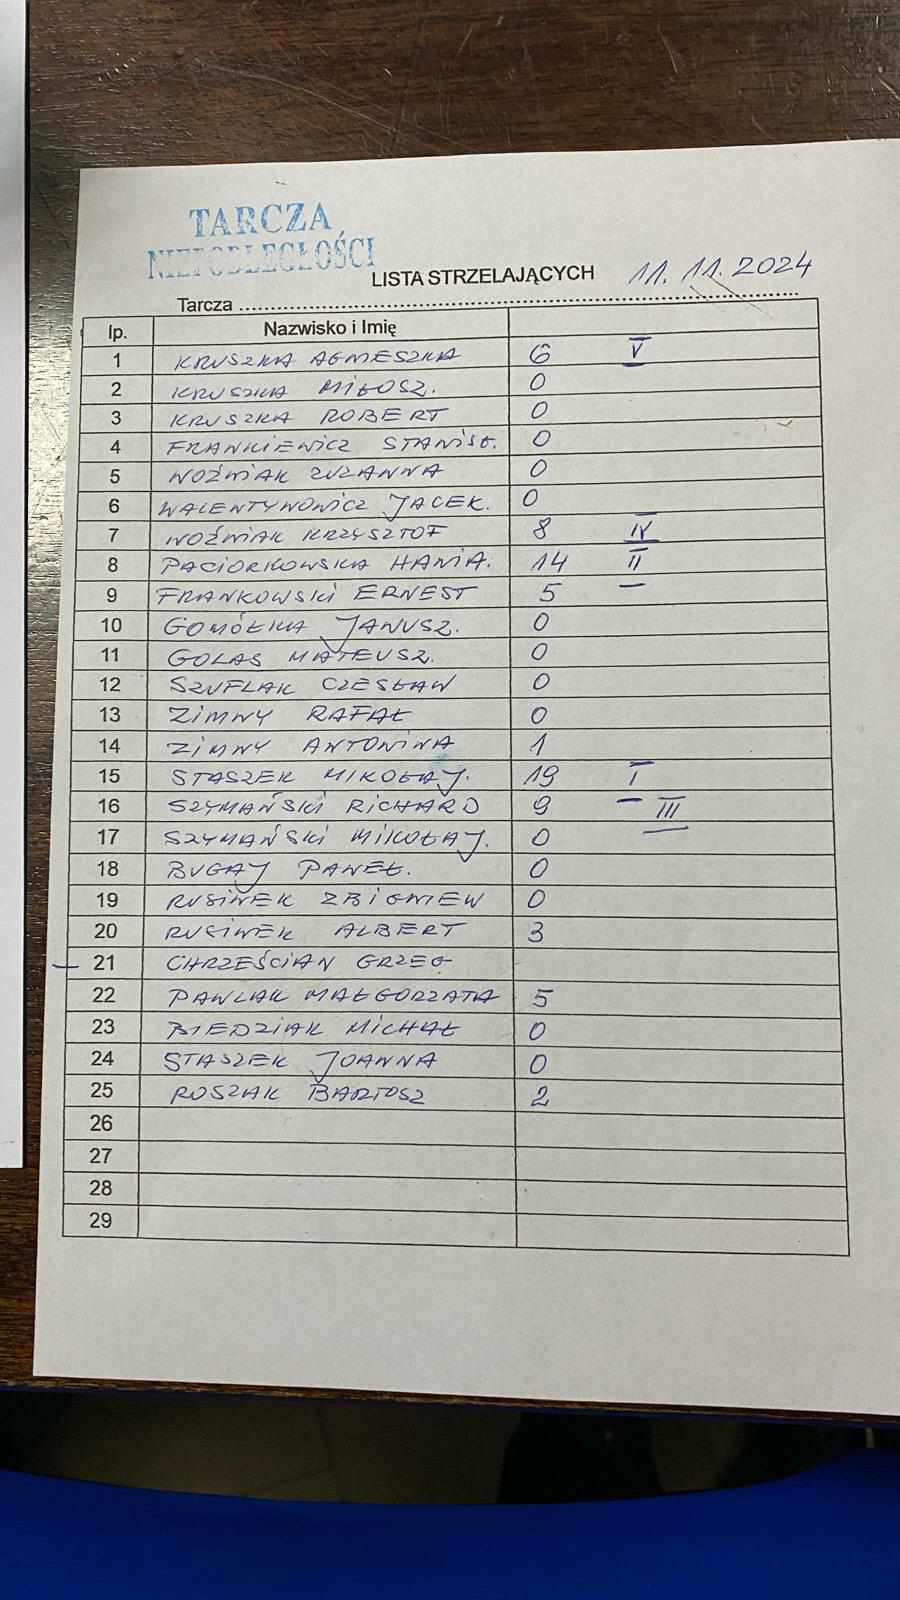 TARCZA
NIEPODLEGŁOŚCI
LISTA STRZELAJĄCYCH 11.11.2024
Tarcza
lp. Nazwisko i Imię
1 KRUSZKA AGNIESZKA 6 V
2 KRUSZKA MIŁOSZ. 0
3 KRUSZKA ROBERT 0
4 FRANKIEWICZ STANISŁ. 0
5 WOŹNIAK ZUZANNA 0
6 WALENTYNOWICZ JACEK. 0
7 WOŹNIAK KRZYSZTOF 8 IV
8 PACIORKOWSKA HANIA. 14 II
9 FRANKOWSKI ERNEST 5 —
10 GOMÓŁKA JANUSZ. 0
11 GOLAS MATEUSZ. 0
12 SZUFLAK CZESŁAW 0
13 ZIMNY RAFAŁ 0
14 ZIMNY ANTONINA 1
15 STASZEK MIKOŁAJ. 19 I
16 SZYMAŃSKI RICHARD 9 III
17 SZYMAŃSKI MIKOŁAJ. 0
18 BUGAJ PAWEŁ. 0
19 RUSINEK ZBIGNIEW 0
20 RUSINEK ALBERT 3
— 21 CHRZEŚCIAN GRZEG
22 PAWLAK MAŁGORZATA 5
23 BIEDZIAK MICHAŁ 0
24 STASZEK JOANNA 0
25 ROSZAK BARTOSZ 2
26
27
28
29